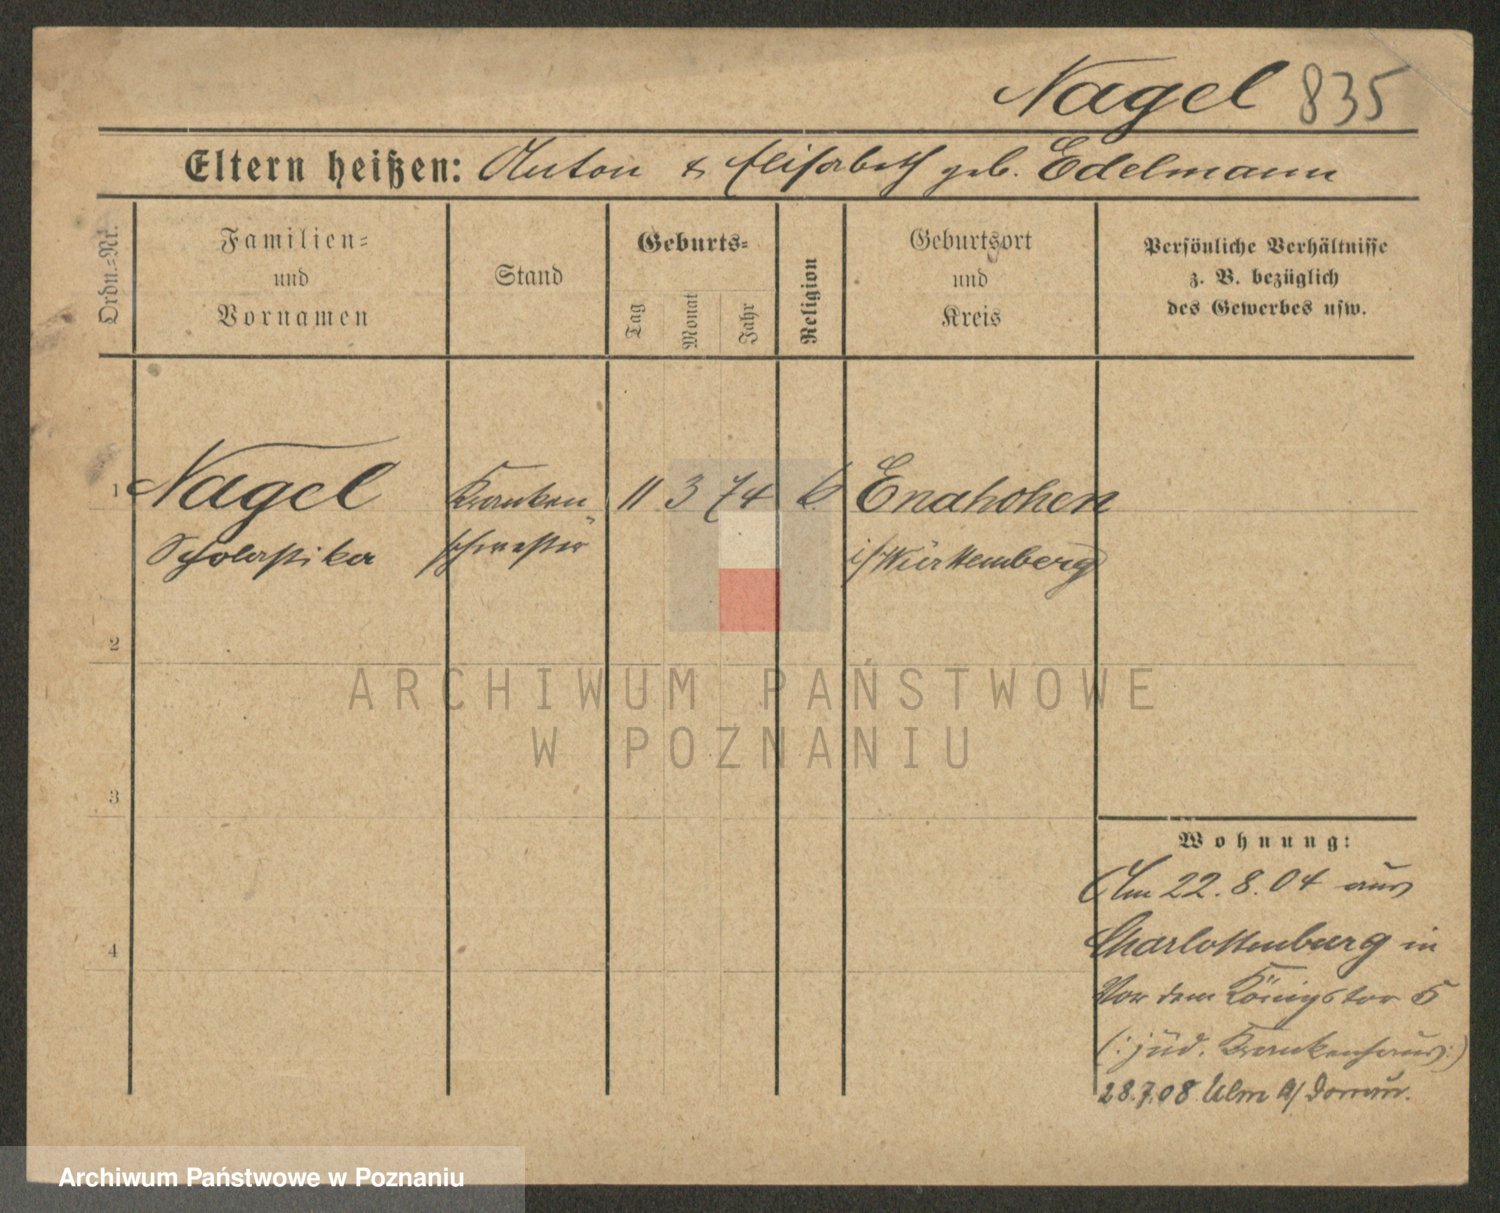 Nagel 835
Eltern heißen: Anton & Elisabeth geb. Edelmann
Ordn.-Nr.
Familien-
und
Vornamen
Stand
Geburts-
Tag
Monat
Jahr
Religion
Geburtsort
und
Kreis
Persönliche Verhältnisse
z. B. bezüglich
des Gewerbes usw.
1 Nagel Kranken 11 3 74 Enahohen
Scholastika schwester i/Württemberg
2
ARCHIWUM PAŃSTWOWE
W POZNANIU
3
Wohnung:
Am 22.8.04 aus
Charlottenburg in
4
Vor dem Königstor 5
(: jüd. Krankenhaus :)
28.7.08 Ulm a/Donau.
Archiwum Państwowe w Poznaniu